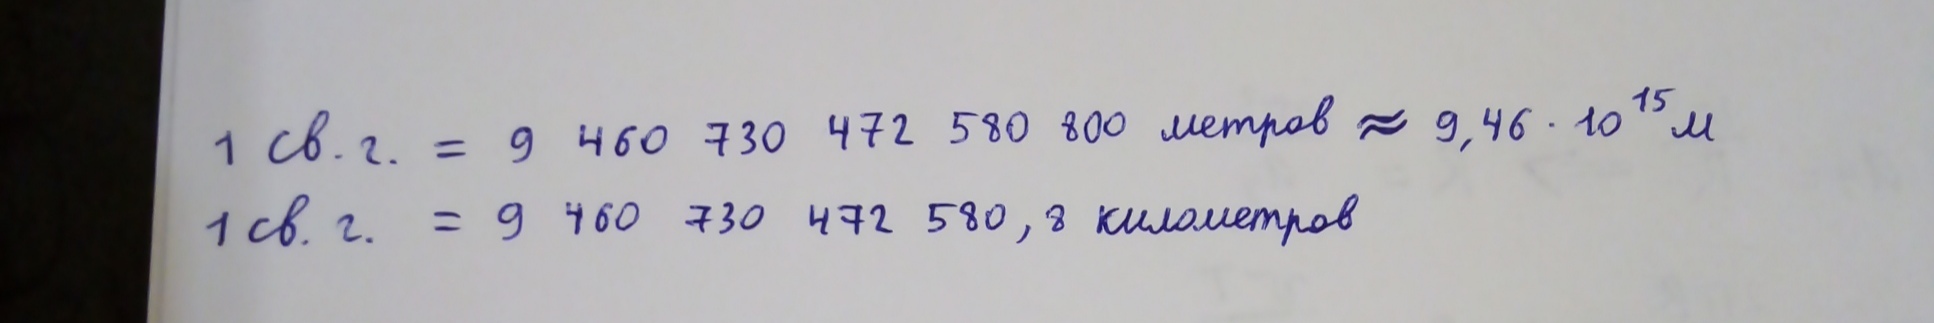 1 св. г. = 9 460 730 472 580 800 метров ≈ 9,46 · 10¹⁵ м
1 св. г. = 9 460 730 472 580,8 километров